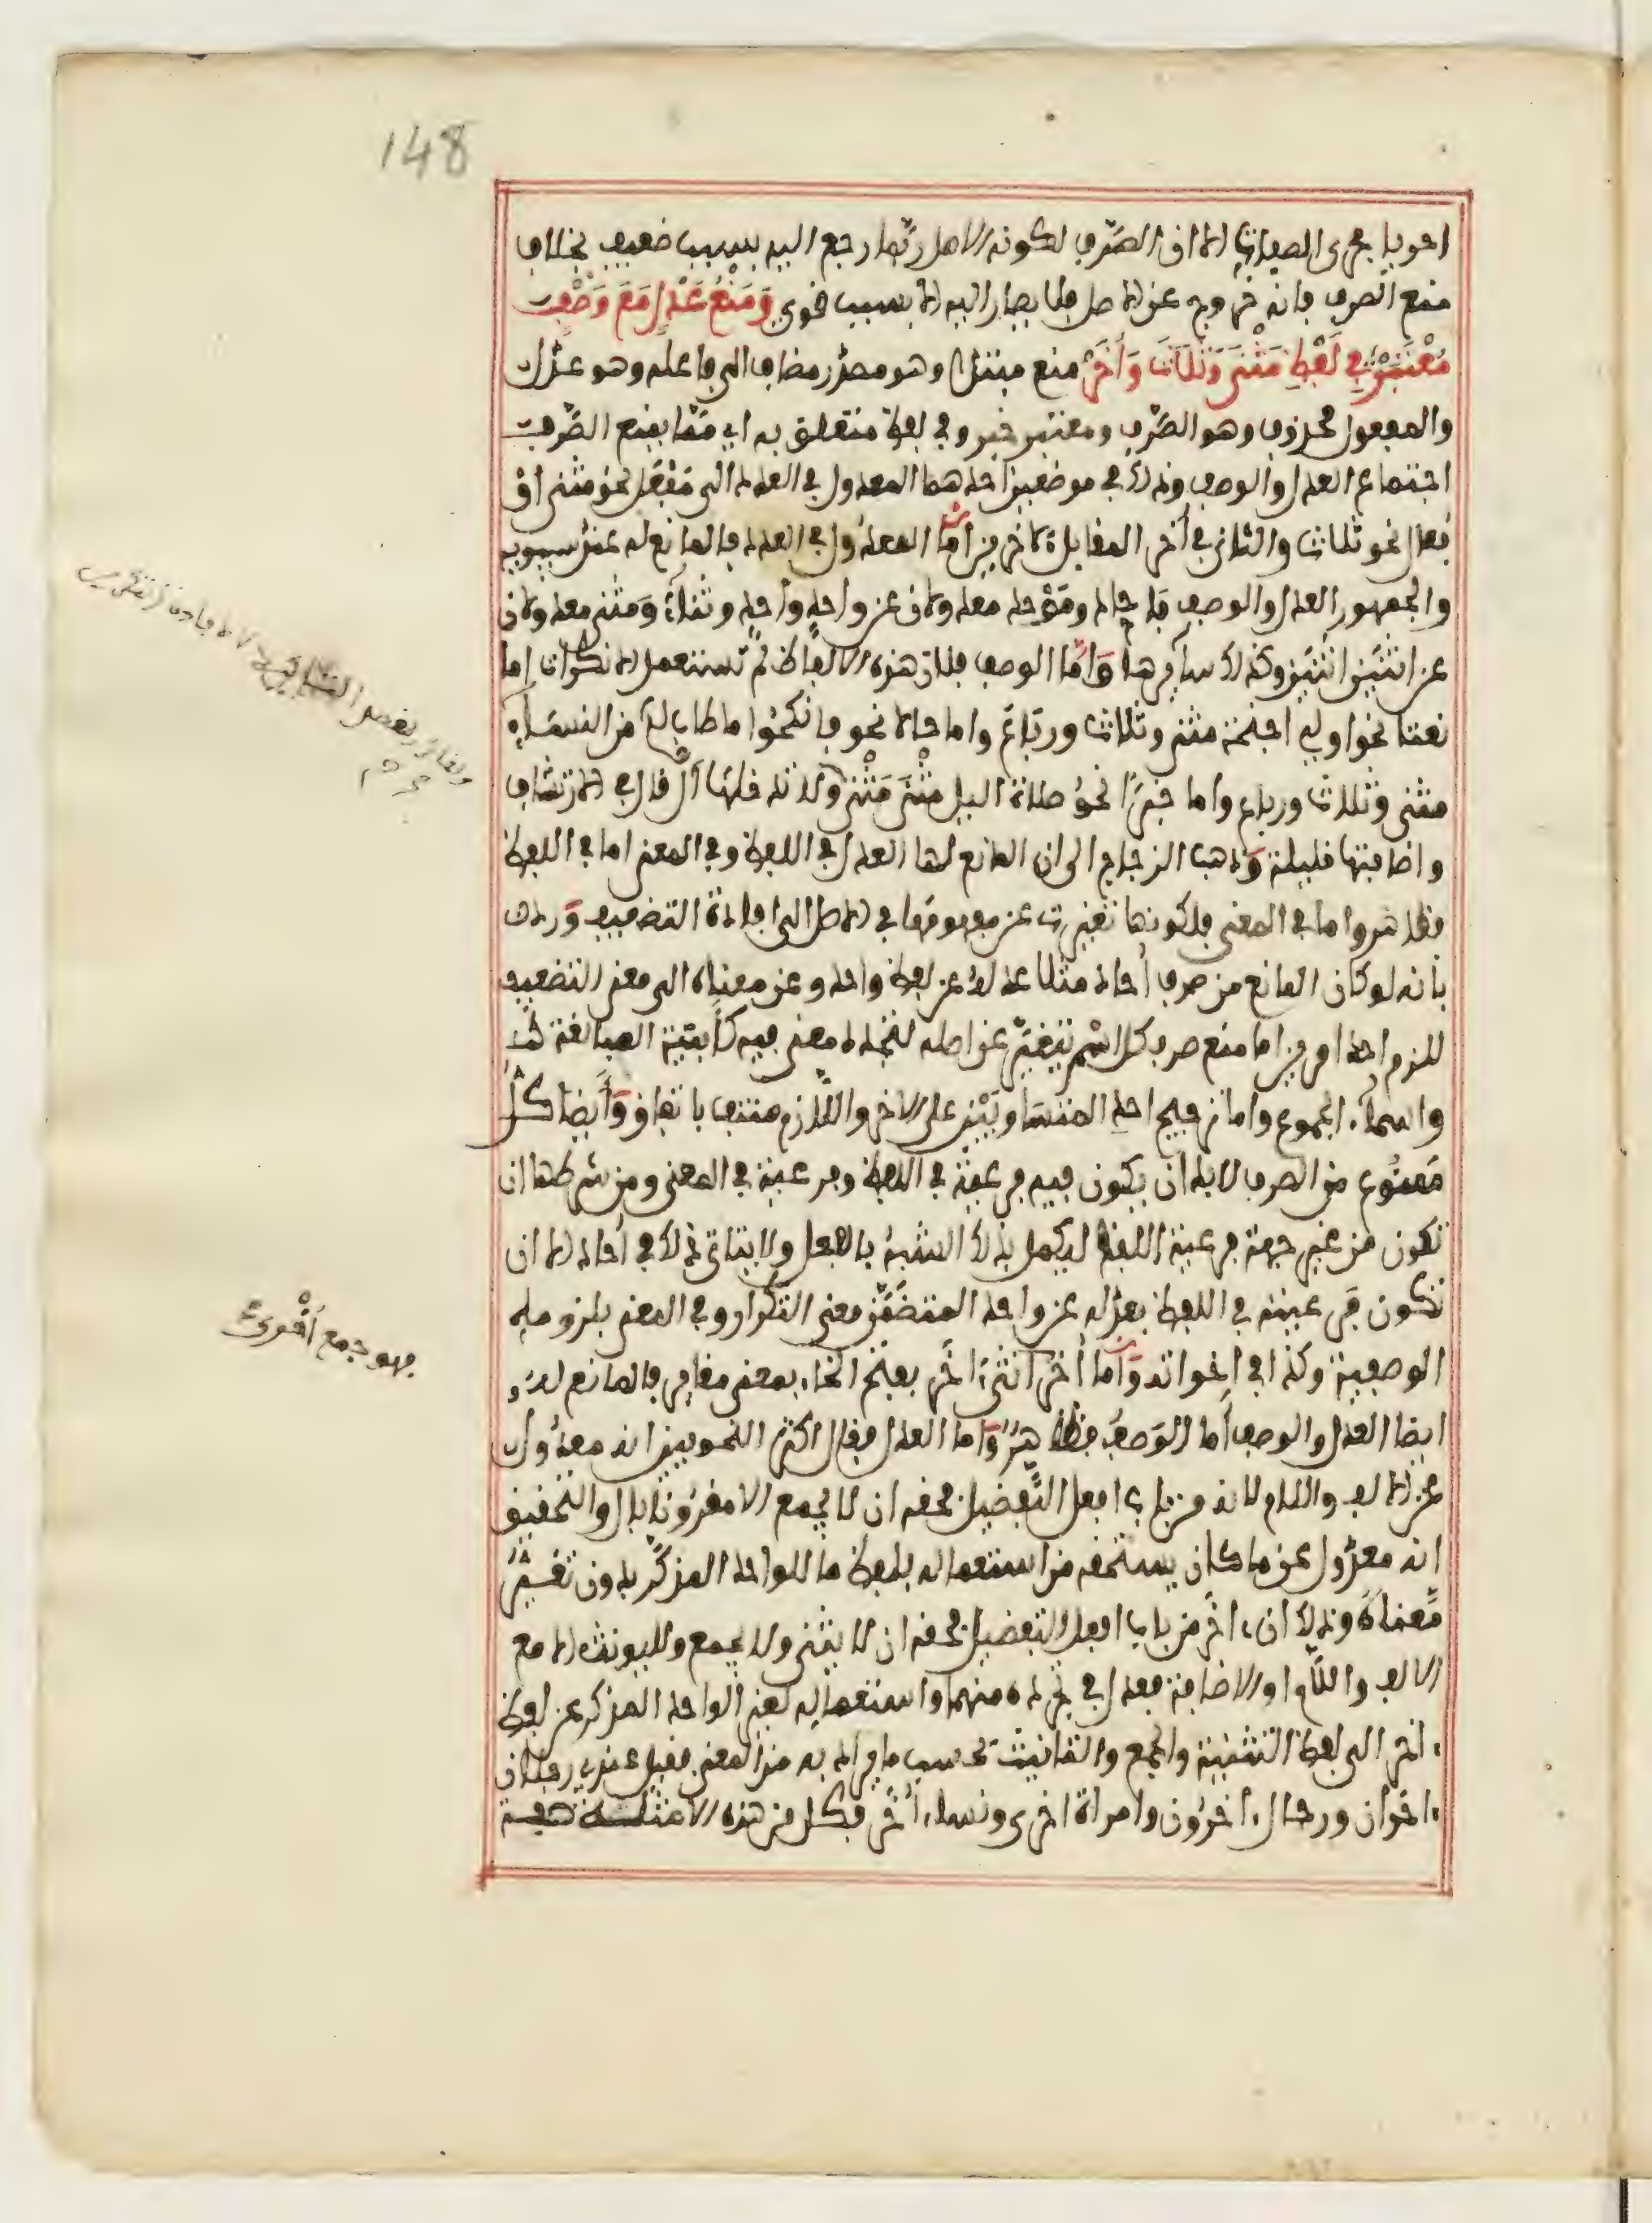 148
احويا مجرى الصفات الا ان الصرف لكونه الاصل ربما رجع اليه بسبب ضعيف بخلاف
منع الصرف فانه خروج عن الاصل فلا يصار اليه الا بسبب قوي وَمَنْعُ عَدْلٍ مَعَ وَصْفٍ
مُعْتَبَرْ فِي لَفْظِ مَثْنَى وَثُلَاثَ وَأُخَرْ منع مبتدا وهو مصدر مضاف الى فاعله وهو عدل
والمفعول محذوف وهو الصرف ومعتبر خبر وفي لفظ متعلق به اي مما يمنع الصرف
اجتماع العدل والوصف وذلك في موضعين احدهما المعدول في العدد الى مَفْعَل نحو مثنى او
فُعال نحو ثلاث والثاني في أخر المقابل لآخرين أما المعدول في العدد فالمانع له عند سيبويه
والجمهور العدل والوصف فأحاد ومَوْحد معدولان عن واحد واحد وثناء ومثنى معدولان
عن اثنين اثنين وكذلك سايرها وأما الوصف فلأن هذه الالفاظ لم تستعمل الا نكرات اما
نعتا نحو اولي اجنحة مثنى وثلاث ورباع واما حالا نحو فانكحوا ما طاب لكم من النساء
مثنى وثلاث ورباع واما خبرًا نحو صلاة الليل مَثْنَى مَثْنَى ولا تدخلها ال قال في الارتشاف
واضافتها قليلة وذهب الزجاج الى ان المانع لها العدل في اللفظ وفي المعنى اما في اللفظ
فظاهر واما في المعنى فلكونها تغيرت عن مفهومها في الاصل الى افادة التضعيف وَرد
بانه لو كان المانع من صرف أحاد مثلا عدله عن لفظ واحد وعن معناه الى معنى التضعيف
للزم احد امرين اما منع صرف كل اسْم تغير عن اصله لتجدد معنى فيه كأبنية المبالغة
واسماء الجموع واما ترجيح احد المتساويَيْن على الاخر واللازم منتف باتفاق وَأيضا كلُّ
مَمنُوع من الصرف لا بد ان يكون فيه فرعية في اللفظ وفرعية في المعنى ومن شرطها ان
تكون من غير جهة فرعية اللفظ ليكمل بذلك الشبه بالفعل ولا يتاتى ذلك في أحاد الا ان
تكون فرعيته في اللفظ بعدله عن واحد المتضمن معنى التكرار وفي المعنى بلزومه
الوصفية وكذا في اخواته وَأما أُخر انثى اخر بفتح الخاء بمعنى مغاير فالمانع له
ايضا العدل والوصف أما الوصف فظاهر وَأما العدل فقال اكثر النحويين انه معدول
عن الالف واللام لانه من باب افعل التفضيل فحقه ان لا يجمع الا مقرونا بال والتحقيق
انه معدول عن ما كان يستحقه من استعماله بلفظ ما للواحد المذكر بدون تغيير
مَعناه وذلك ان آخر من باب افعل التفضيل فحقه ان لا يثنى ولا يجمع ولا يونث الا مع
الالف واللام او الاضافة فعدل في تجرده منهما واستعماله لغير الواحد المذكر عن لفظ
آخر الى لفظ التثنية والجمع والتانيث بحسب ما يراد به من المعنى فقيل عندي رجلان
آخران ورجال آخرون وامراة اخرى ونساء أُخر فكل من هذه الامثلة صفة
فهو جمع أَخرى